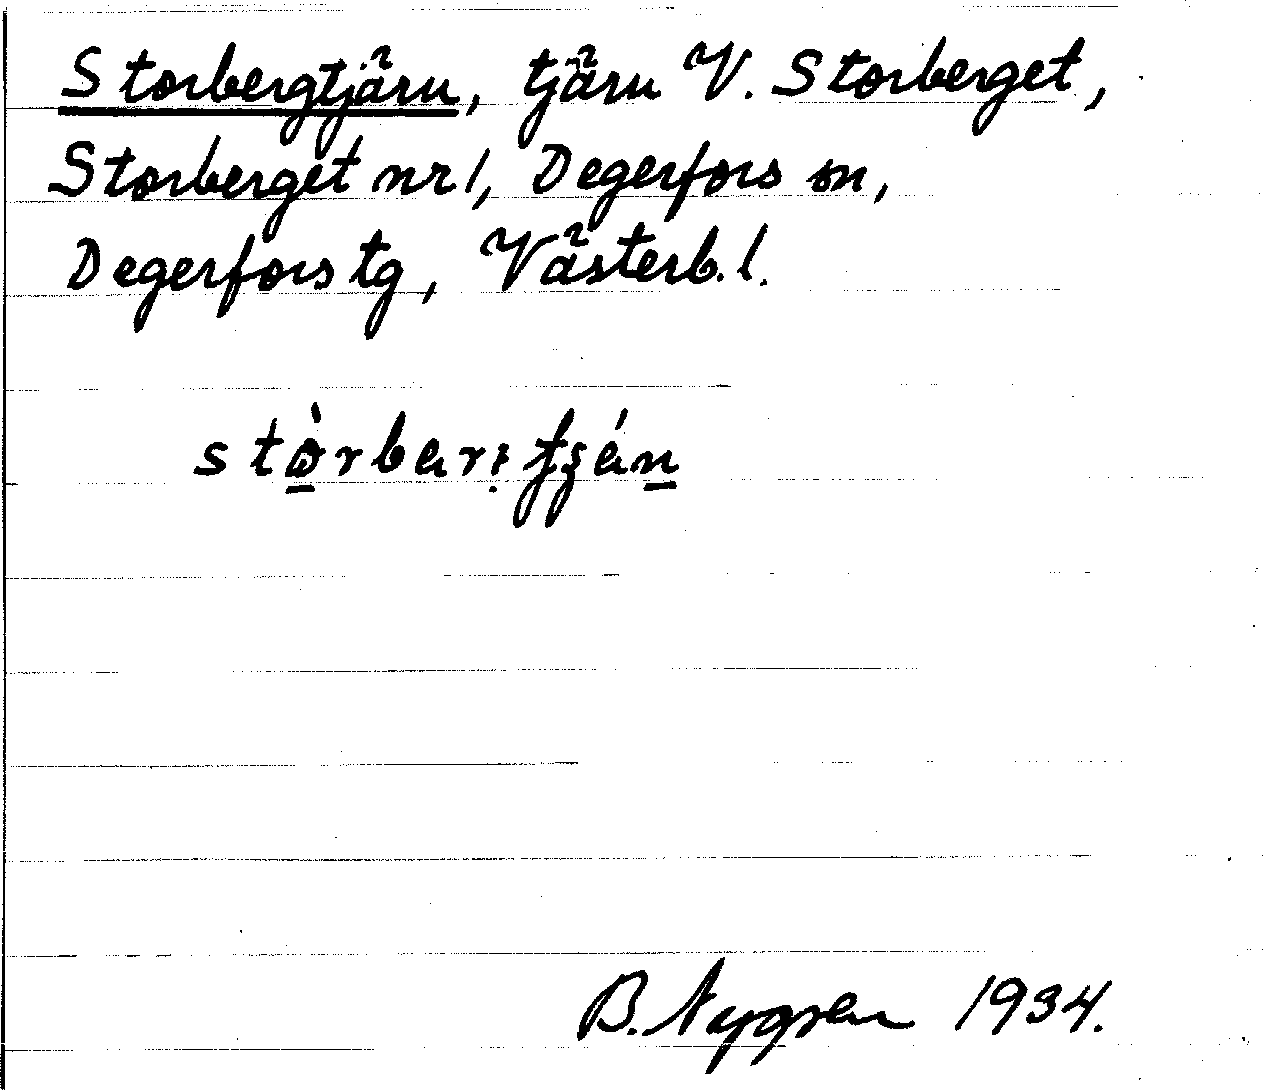 Storbergtjärn, tjärn V. Storberget,
Storberget nr 1, Degerfors sn,
Degerfors tg, Västerb. l.
B. Nygren 1934.